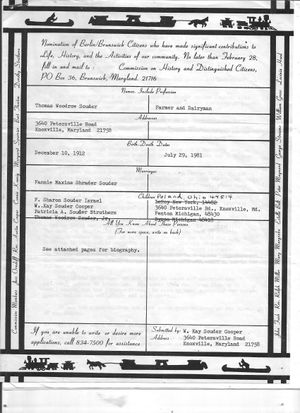 Nomination of Berlin/Brunswick Citizens who have made significant contributions to
Life, History, and the Activities of our community. No later than February 28,
fill in and mail to: Commission on History and Distinguished Citizens,
PO Box 36, Brunswick, Maryland. 21716
Names, Include Profession
Thomas Woodrow Souder
Farmer and Dairyman
Addresses
3640 Petersville Road
Knoxville, Maryland 21758
Birth-Death Dates
December 10, 1912
July 29, 1981
Marriages
Fannie Maxine Shrader Souder
Children
Poland, Ohio 44514
F. Sharon Souder Israel
W. Kay Souder Cooper
3640 Petersville Rd., Knoxville, Md.
Patricia A. Souder Struthers
Fenton Michigan, 48430
Thomas Woodrow Souder, Jr.
All You Know About These Persons
(For more space, write on back)
See attached pages for biography.
If you are unable to write or desire more
applications, call 834-7500 for assistance
Submitted by: W. Kay Souder Cooper
Address 3640 Petersville Road
Knoxville, Maryland 21758